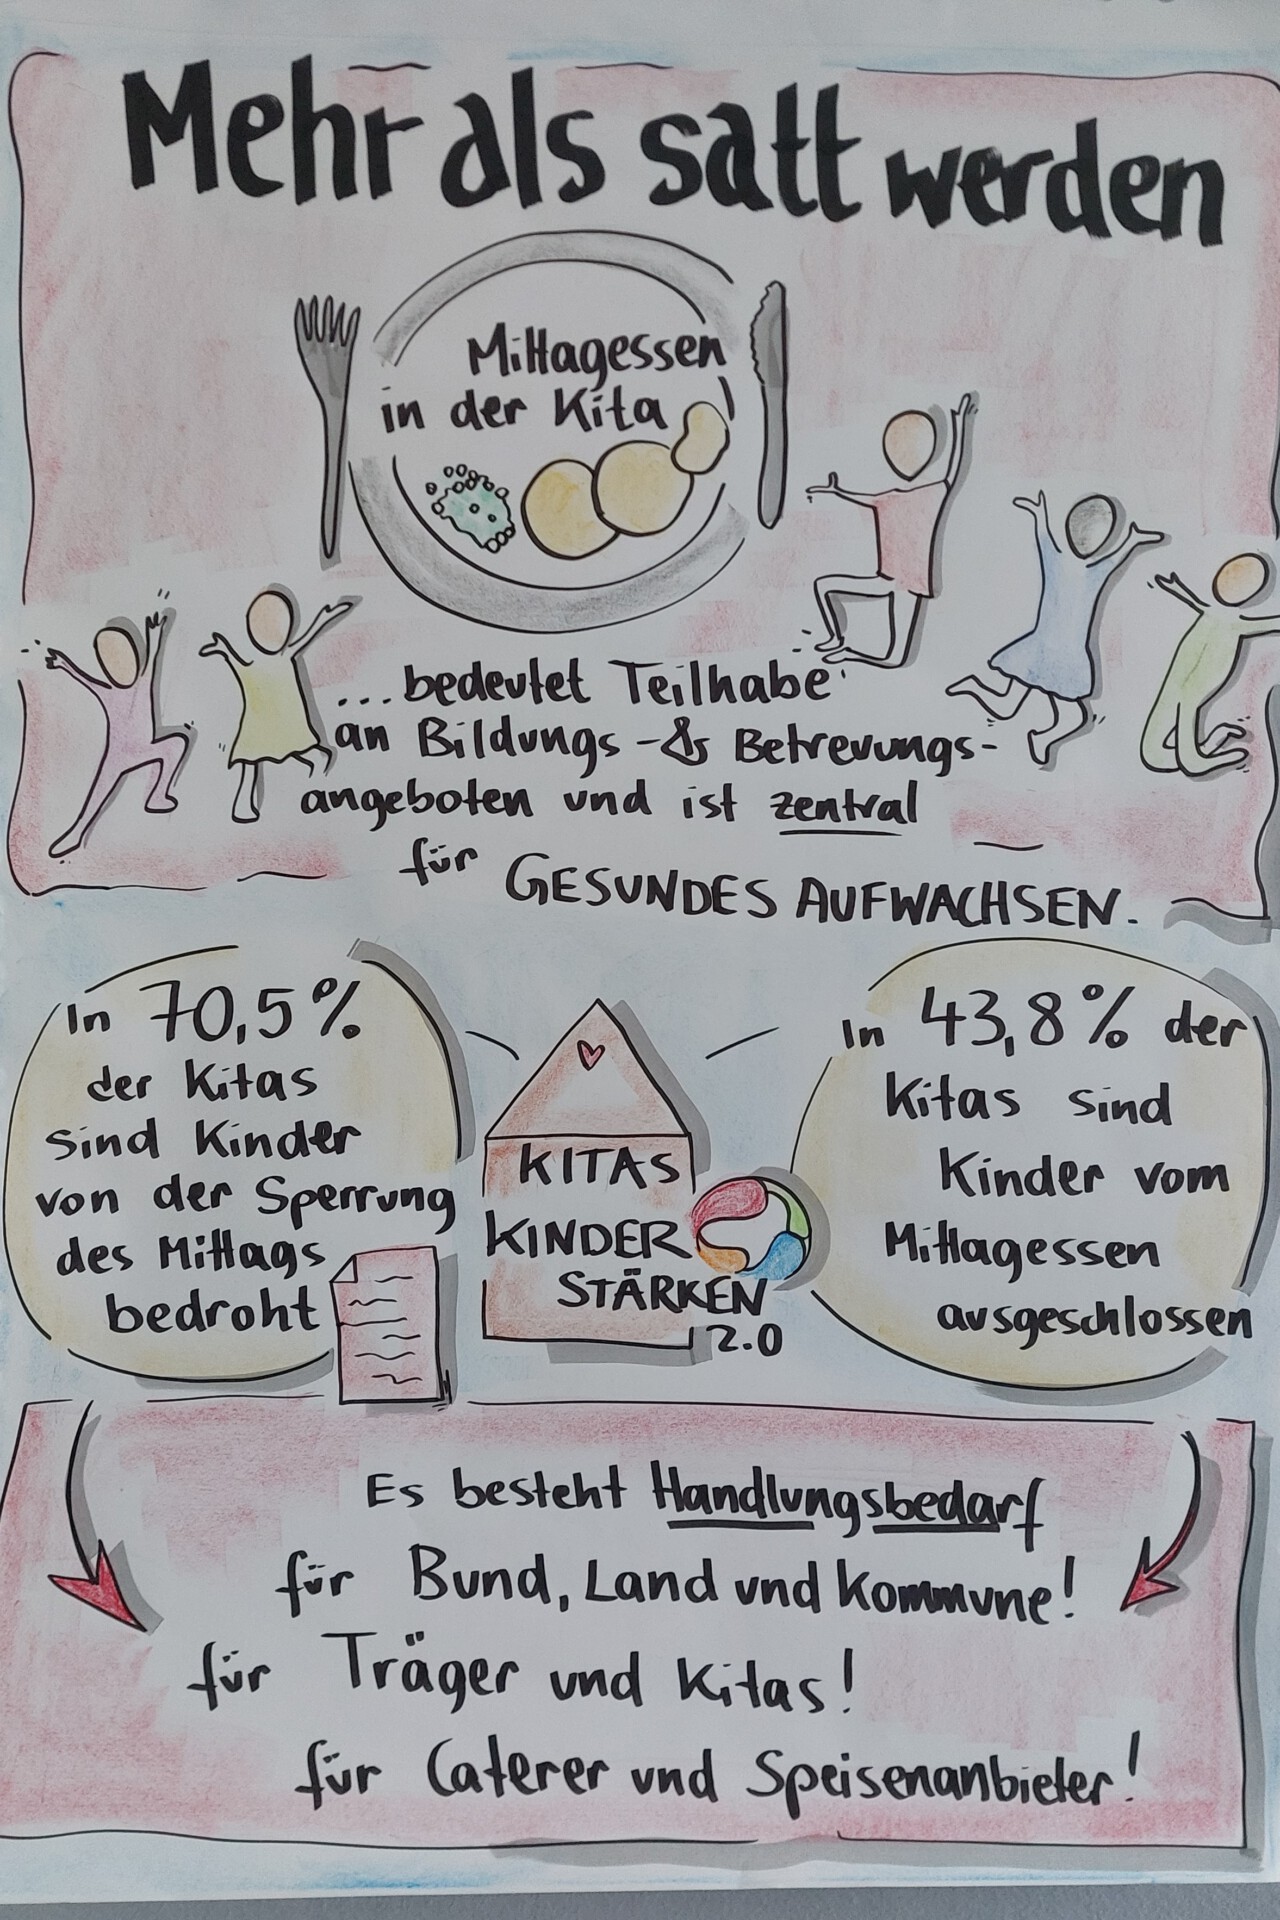 Mehr als satt werden
Mittagessen
in der Kita
... bedeutet Teilhabe
an Bildungs- & Betreuungs-
angeboten und ist zentral
für GESUNDES AUFWACHSEN.
In 70,5%
der Kitas
sind Kinder
von der Sperrung
des Mittags
bedroht
KITAS
KINDER
STÄRKEN
2.0
In 43,8% der
Kitas sind
Kinder vom
Mittagessen
ausgeschlossen
Es besteht Handlungsbedarf
für Bund, Land und Kommune!
für Träger und Kitas!
für Caterer und Speisenanbieter!